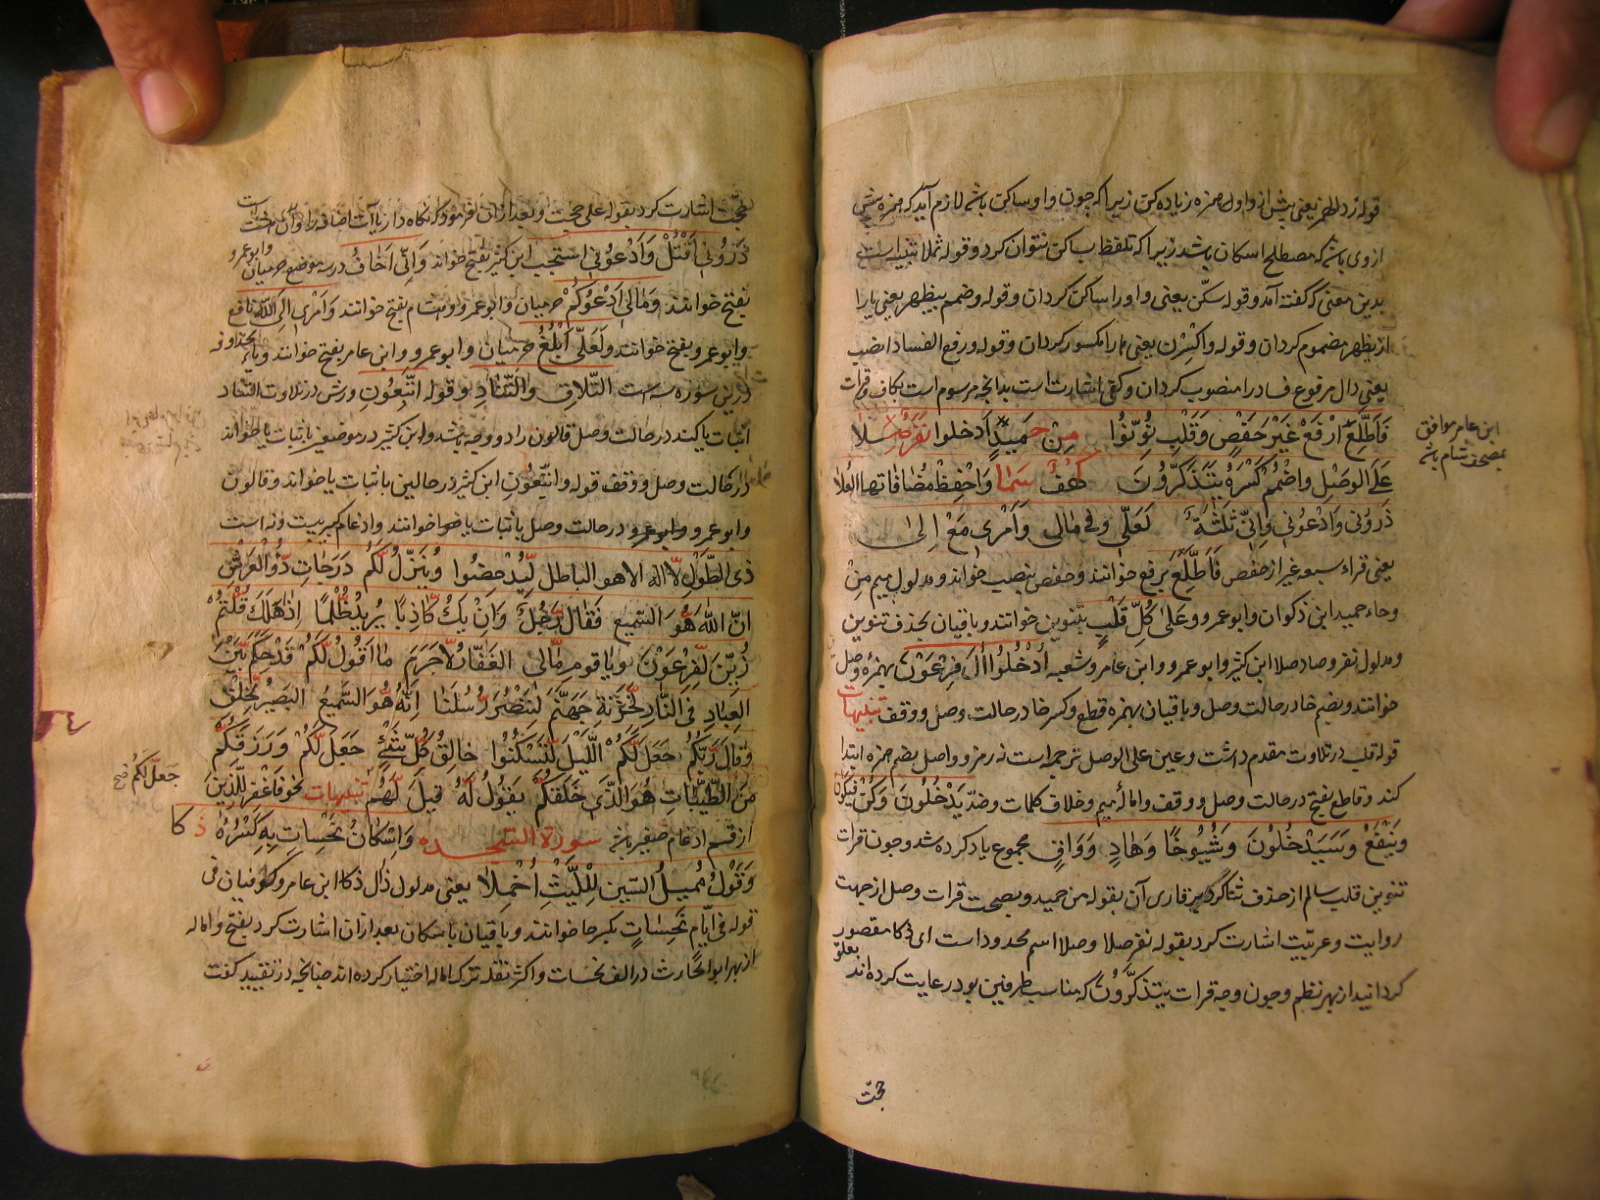 قوله زد لطهر یعنی پیش از واو اول همزه زیاده کن زیرا که چون واو ساکن باشد لازم آید که همزه پیش
از وی باشد که مصطلح اسکان باشد زیرا که تلفظ بساکن نتوان کرد و قوله ثملا تنبیه است
بدین معنی که گفته آمد و قوله سکّن یعنی واو را ساکن کردان و قوله وضمم بیظهر یعنی یا را
از یظهر مضموم کردان و قوله واکسرن یعنی ها را مکسور کردان و قوله ورفع الفساد انصب
یعنی دال مرفوع فساد را منصوب کردان و کفی اشارت است بدانچه مرسوم است بکاف و قرات
فَاَطَّلِعَ اَرْفَعْ غَیْرَ حَفْصٍ وَقَلْبِ نُوِّنُوا مِنْ حَمیدٍ اَدخلوا نَفَرٌ صِلا
عَلَی الوَصْلِ وَاضْمُمْ کَسْرَهُ یَتَذَکَّرُونَ کَهْفٌ سَمَا وَاحْفِظْ مُضَافَاتها العُلا
ذَرُونی وَادْعُونی وَاِنّی ثَلَثَةٌ لَعَلّی وَفی مٰالی وَاَمْری مَعْ اِلیٰ
یعنی قراء سبعه غیر از حفص فَاَطَّلِعُ برفع خوانند و حفص بنصب خواند و مدلول میم مِنْ
وحاء حمید ابن ذکوان وابو عمرو وعَلیٰ کُلِّ قَلْبٍ بتنوین خوانند و باقیان بحذف تنوین
ومدلول نفر وصاد صلا ابن کثیر وابو عمرو وابن عامر وشعبه اُدْخُلُوا اٰلَ فِرْعَوْنَ بهمزهٔ وصل
خوانند وبضم خا در حالت وصل و باقیان بهمزه قطع وکسر خا در حالت وصل و وقف تنبیهات
قوله قلب در تلاوت مقدم داشت وعین علی الوصل ترجمه است نه رمز و واصل بضم همزه ابتدا
کند وقاطع بفتح در حالت وصل و وقف واماله میم وخلاف کلمات وضدّ یَدْخُلُونَ وَکُنْ فَیَکُونَ
وَیَنْفَعُ وَسَیَدْخُلُونَ وَشُیُوخًا وَهَادٍ وَوَاقٍ مجموع یاد کرده شد وچون قرات
تنوین قلب سالم از حذف قاری آن بقوله من حمید وبصحت قرات وصل از جهت
روایت وعربیّت اشارت کرد بقوله نفر صلا وصلا اسم محدود است ای ذکا مقصور
کردانید از بهر نظم وچون وجه قرات یتذکّرونَ که مناسب طرفین بود رعایت کرده اند بعلوّ
حجّت
ابن عامر موافق
مصحف شام باشد
حجّت اشارت کرد بقوله علی حجت و بعد از ان فرمود که نکاه دار یاآت اضافه را و آن است
ذَرُونی اَقْتُلْ وَادْعُونی اَسْتَجِب ابن کثیر بفتح خواند وَاِنّی اَخَافُ در سه موضع حرمیان وابو عمرو
بفتح خوانند وَمَالی اَدْعُوکُمْ حرمیان وابو عمرو وهشام بفتح خوانند وَاَمْری اِلَی اللّه نافع
وابو عمرو بفتح خوانند وَلَعَلّی اَبْلُغُ حرمیان وابو عمرو وابن عامر بفتح خوانند
درین سوره سه است التَّلَاقِ وَالتَّنَادِ وقوله اتَّبِعُونِ ورش در تلاوت التناد
اثبات یا کند در حالت وصل قالون را دو وجه باشد وابن کثیر در دو موضع باثبات یا خواند
در حالت وصل و وقف قوله واتَّبِعُونِ ابن کثیر در حالین باثبات یا خواند وقالون
وابو عمرو در حالت وصل باثبات یا خوانند وادغام کبیر بیست ونه است
ذِی الطَّوْلِ لٰا اله الا هو الباطل لِیُدْحِضُوا وَیُنَزِّلُ لَکُم دَرَجَاتِ ذُو العَرْشِ
اِنَّ اللّهَ هُوَ السَّمِیعِ فَقَالَ رَجُلٌ وَاِنْ یَکُ کَاذِبًا یُرِیدُ ظُلْمًا اِذَا هَلَكَ قُلْتُمْ
زُیِّنَ لِفِرْعَوْنَ ویاقوم مٰالی الغَفّارِ لاَجَرَمَ مٰا اَقُولُ لَکُمْ قَدْ حَکَمَ بَیْنَ
العِبَادِ فی النَّارِ لِخَزَنَةِ جَهَنَّمَ لَنَنْصُرُ رُسُلَنَا اِنَّهُ هُوَ السَّمِیعُ البَصِیرُ لَخَلْقُ
وَقَالَ رَبُّکُمُ جَعَلَ لَکُمُ اللَّیْلَ لِتَسْکُنُوا خَالِقُ کُلِّ شَیْءٍ جَعَلَ لَکُمُ وَرَزَقَکُمْ
مِنَ الطَّیِّبَاتِ هُوَ الَّذی خَلَقَکُم یَقُولُ لَهُ قِیلَ لَهُمْ تنبیهات نحو فَاغْفِرْ لِلَّذِینَ
از قسم ادغام صغیر باشد سورة السّجده وَاِسْکَانُ نَحْسَاتٍ بِهِ کَسْرُهُ ذکا
وَقَوْلُ مُمِیلُ السّینِ لِلَّیْثِ اُخْمِلَا یعنی مدلول ذال ذکا ابن عامر وکوفیان فی
قوله فی ایّام نَحِسَاتٍ بکسر حا خوانند و باقیان باسکان بعد از ان اشارت کرد بفتح واماله
از بهر ابو الحارث در الف نحسات واکثر نقله ترک اماله اختیار کرده اند چنانچه در تقیید کفت
جَعَلَ لَکُمُ